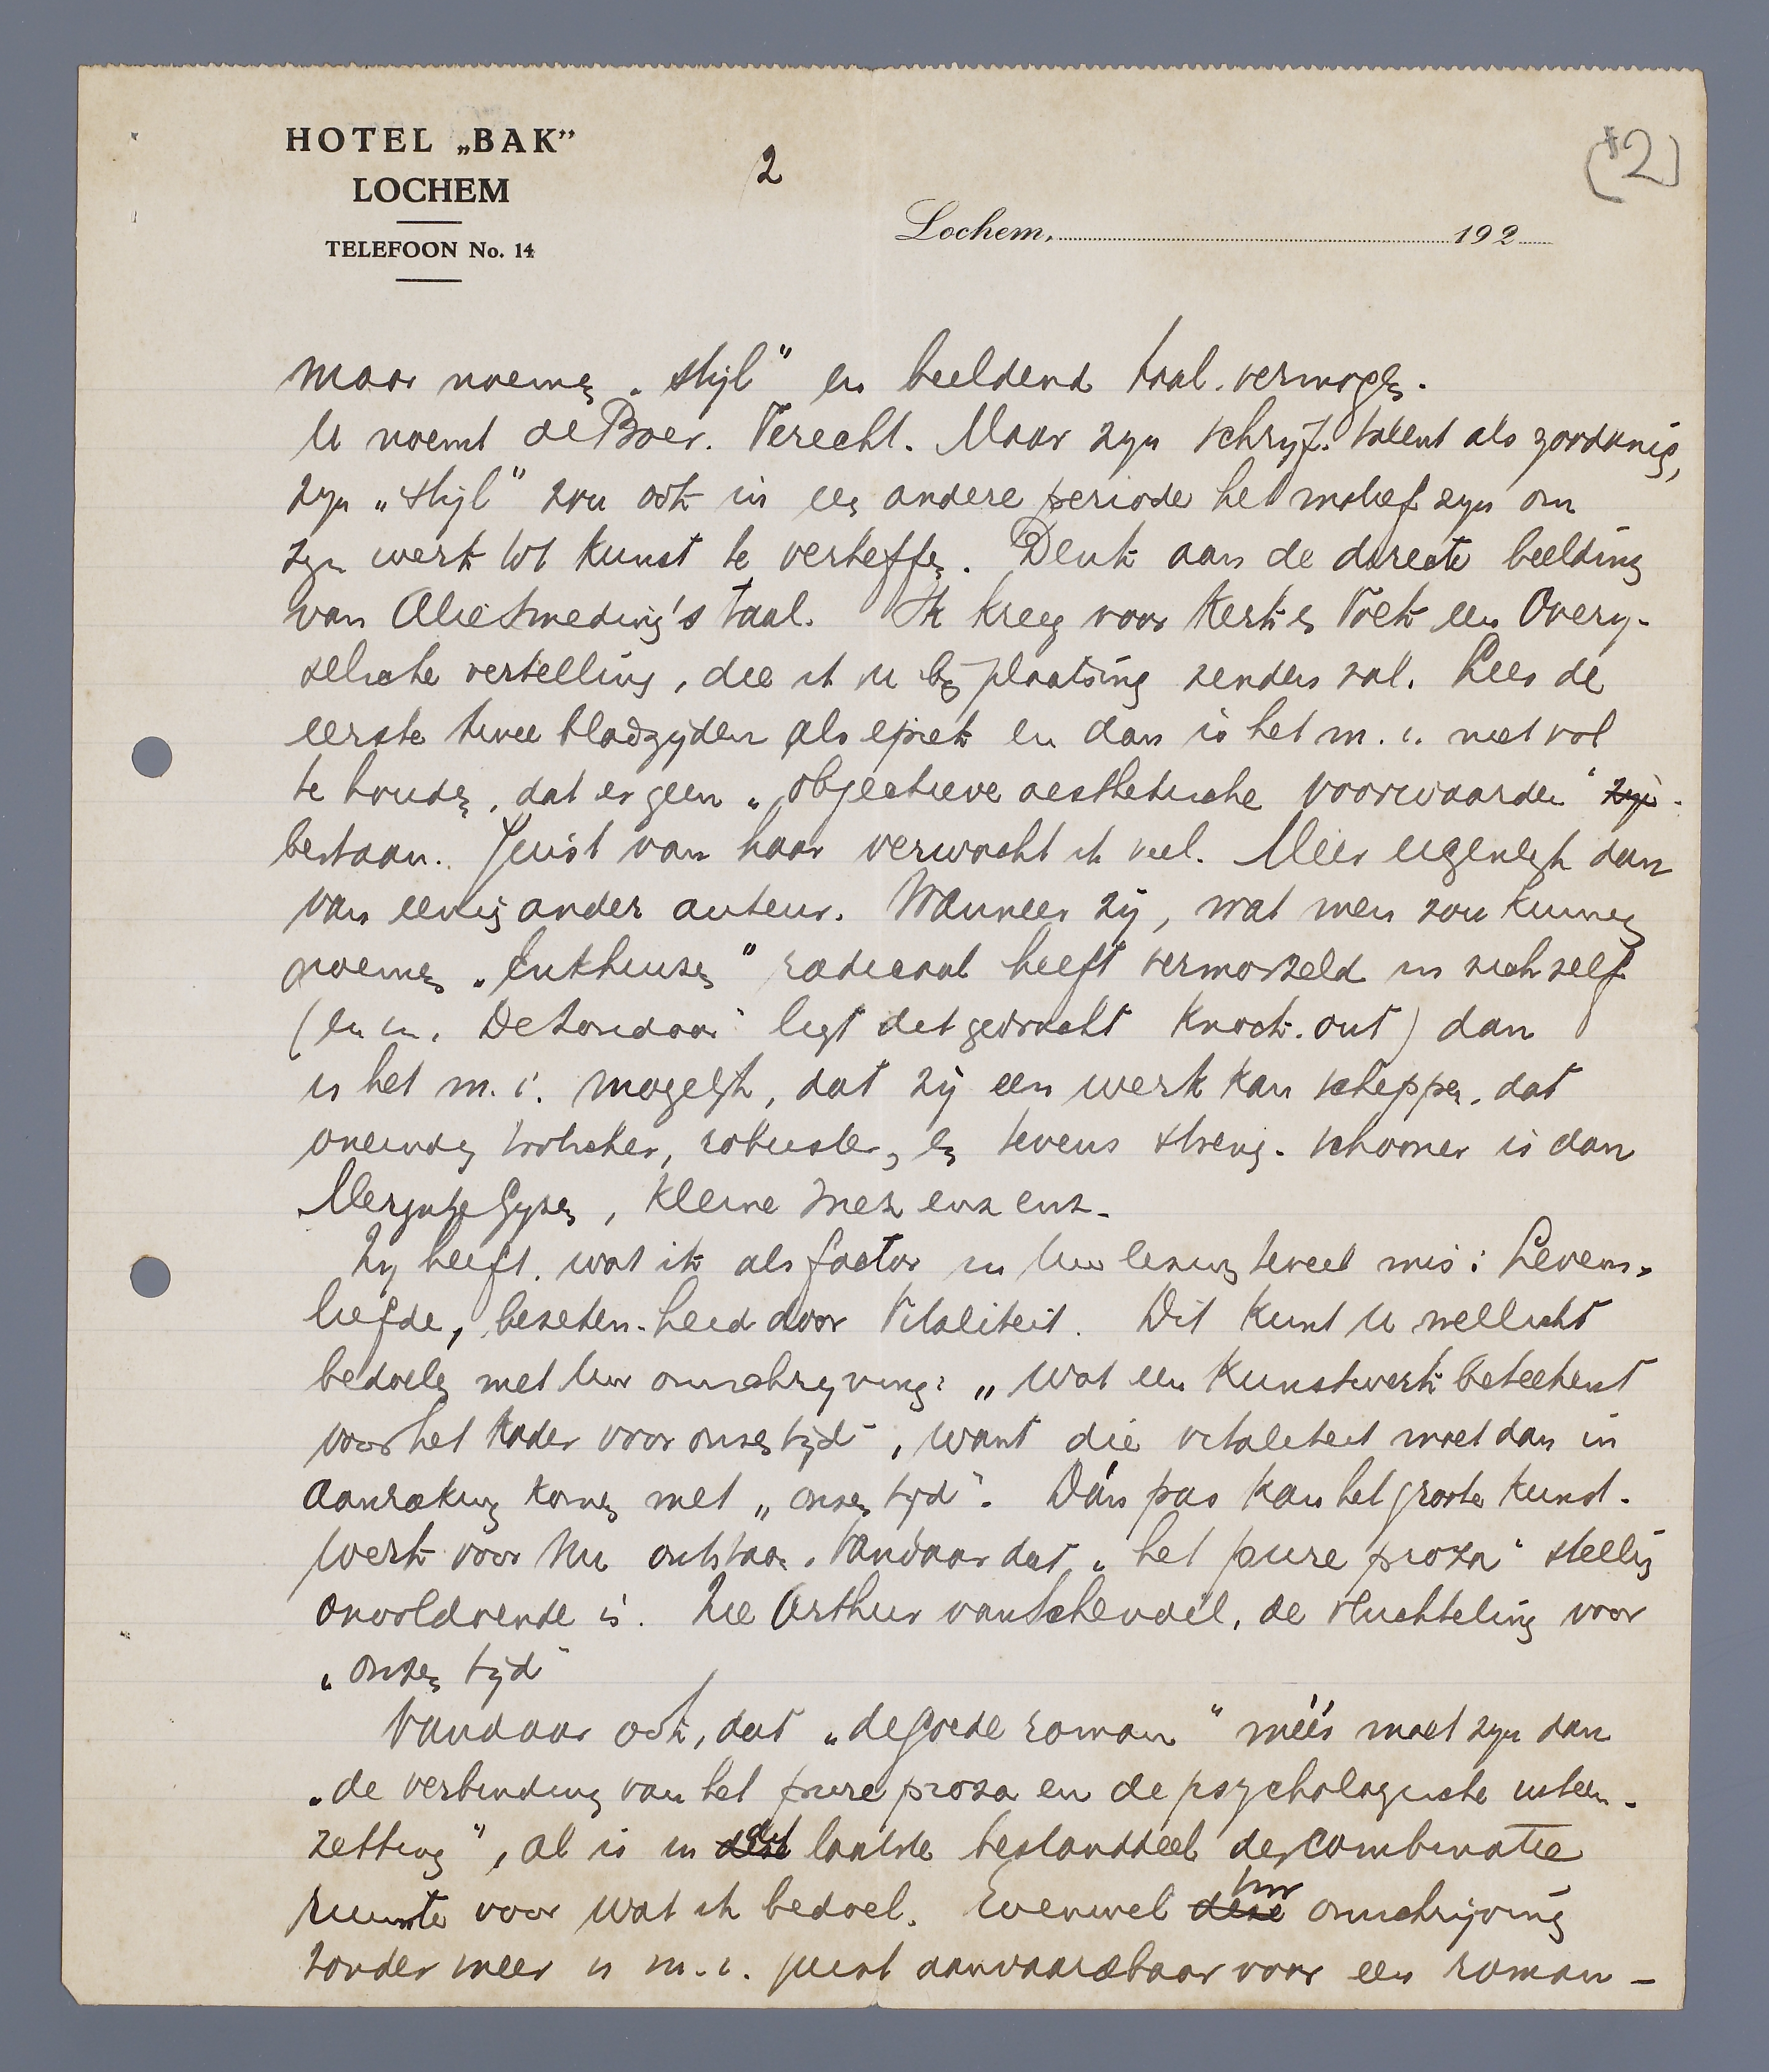 HOTEL „BAK”
LOCHEM
TELEFOON No. 14
2
(*2)
Lochem, 192
maar noemen „stijl" en beeldend taal-vermogen.
U noemt de Boer. Terecht. Maar zyn schryf-talent als zoodanig,
zyn „stijl" zou ook in een andere periode het motief zyn om
zyn werk tot kunst te verheffen. Denk aan de directe beelding
van Alie Smeding's taal. Ik kreeg voor Kerk en Volk een Overy-
selsche vertelling, die ik u by plaatsing zenden zal. Lees de
eerste twee bladzyden als epiek en dan is het m.i. niet vol
te houden, dat er geen „objectieve aesthetische voorwaarden" zyn
bestaan. Juist van haar verwacht ik veel. Meer eigenlyk dan
van eenig ander auteur. Wanneer zij, wat men zou kunnen
noemen „Enkhuizen" radicaal heeft vermorzeld in zich zelf
(en in „De Zondaar" ligt dat gedrocht knock-out) dan
is het m.i. mogelyk, dat zij een werk kan scheppen, dat
oneindig trotscher, robuster, en tevens streng-schooner is dan
Merijntje Gyzen, Kleine Inez enz enz.
Zy heeft, wat ik als factor in Uw lezing teveel mis: Levens-
liefde, bezeten-heid door Vitaliteit. Dit kunt U wellicht
bedoelen met Uw omschryving: „wat een kunstwerk beteekent
voor het kader voor onzen tijd", want die vitaliteit moet dan in
aanraking komen met „onzen tyd". Dán pas kan het groote kunst-
werk voor Nu ontstaan. Vandaar dat „het pure proza" stellig
onvoldoende is. Zie Arthur van Schendel, de vluchteling voor
„onzen tyd"
Vandaar ook, dat „de goede roman" méér moet zyn dan
„de verbinding van het pure proza en de psychologische uiteen-
zetting", al is in deze dit laatste bestanddeel der combinatie
ruimte voor wat ik bedoel. Evenwel deze Uw omschrijving
zonder meer is m.i. juist aanvaardbaar voor een roman-